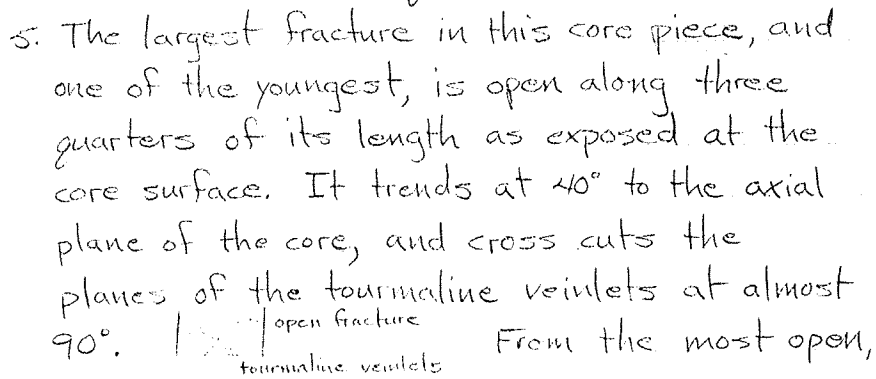 5. The largest fracture in this core piece, and
one of the youngest, is open along three
quarters of its length as exposed at the
core surface. It trends at 40° to the axial
plane of the core, and cross cuts the
planes of the tourmaline veinlets at almost
90°. open fracture From the most open,
tourmaline veinlets